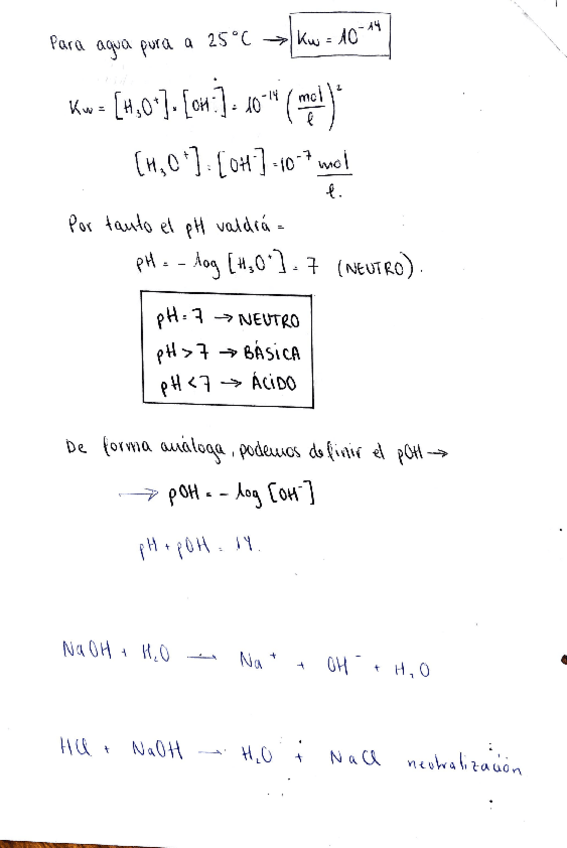 Para agua pura a 25°C → Kw = 10⁻¹⁴
Kw = [H₃O⁺] · [OH⁻] = 10⁻¹⁴ (mol/l)²
[H₃O⁺] = [OH⁻] = 10⁻⁷ mol/l.
Por tanto el pH valdrá =
pH = - log [H₃O⁺] = 7 (NEUTRO).
pH = 7 → NEUTRO
pH > 7 → BÁSICA
pH < 7 → ÁCIDO
De forma análoga, podemos definir el pOH →
→ pOH = - log [OH⁻]
pH + pOH = 14.
NaOH + H₂O → Na⁺ + OH⁻ + H₂O
HCl + NaOH → H₂O + NaCl neutralización